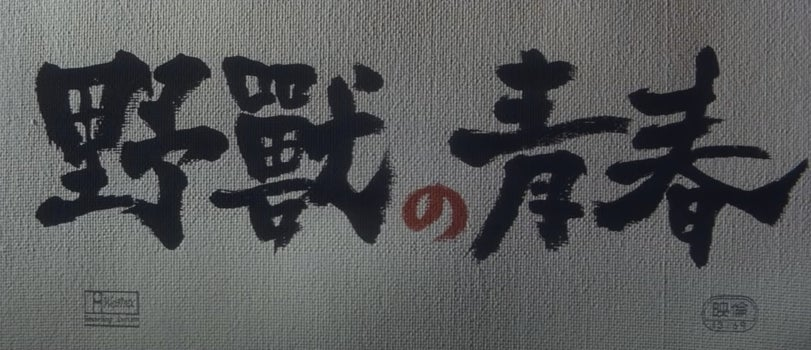 野獸の青春
映倫